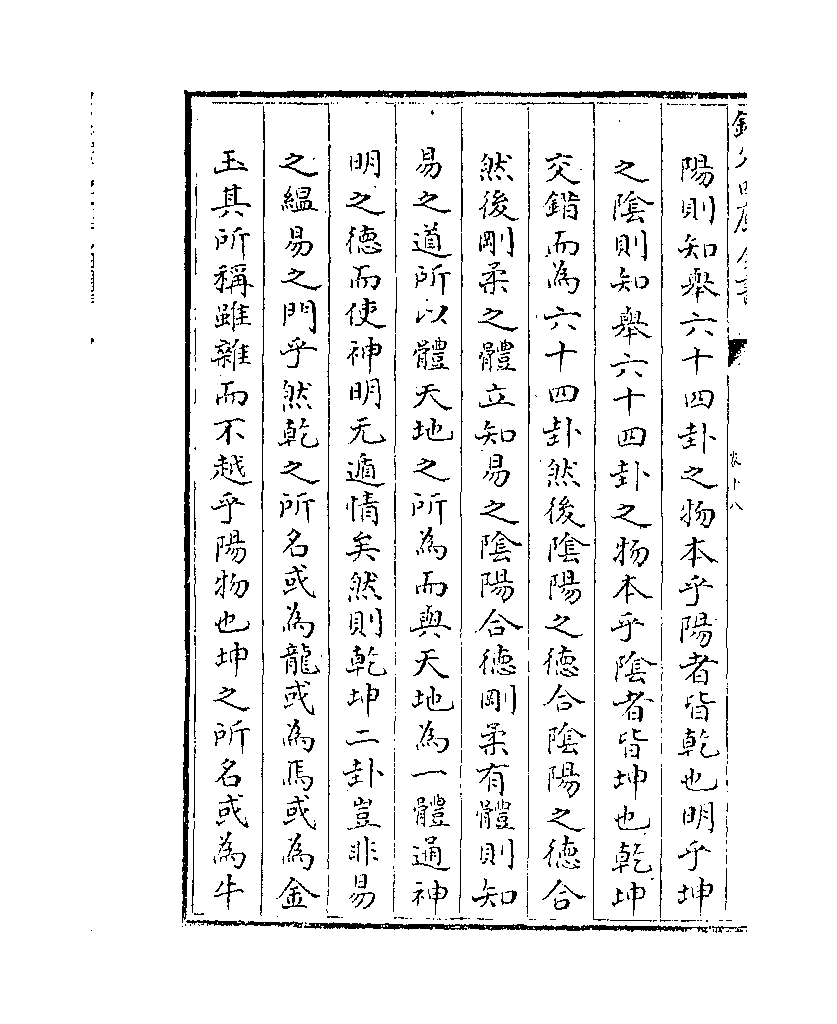 陽則知舉六十四卦之物本乎陽者皆乾也明乎坤
之陰則知舉六十四卦之物本乎陰者皆坤也乾坤
交錯而為六十四卦然後陰陽之德合陰陽之德合
然後剛柔之體立知易之陰陽合德剛柔有體則知
易之道所以體天地之所為而與天地為一體通神
明之德而使神明无遁情矣然則乾坤二卦豈非易
之緼易之門乎然乾之所名或為龍或為馬或為金
玉其所稱雖雜而不越乎陽物也坤之所名或為牛
卷十八